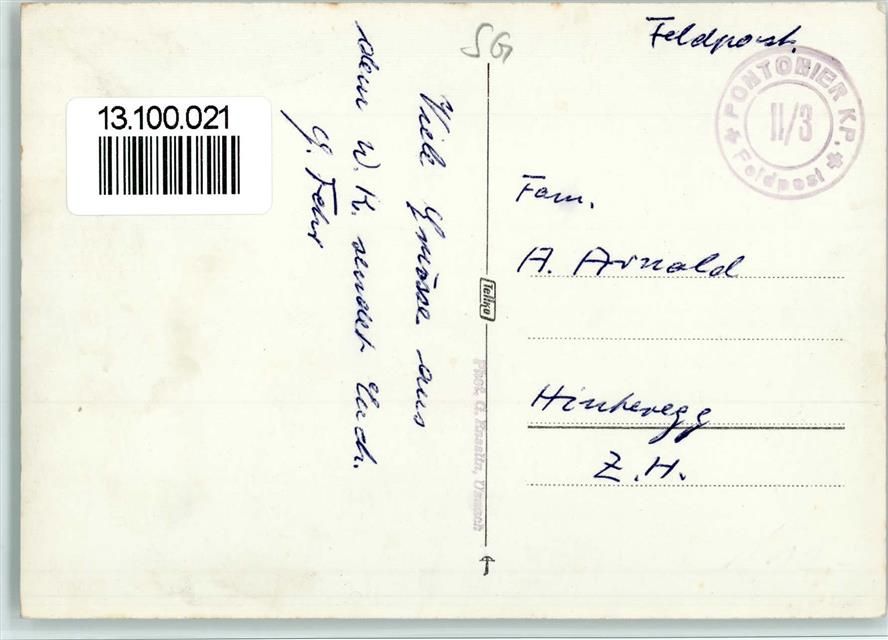 SG
Feldpost.
PONTONIER KP.
II/3
Feldpost
13.100.021
Viele Grüsse aus
dem W.K. sendet Euch.
G. Fehr
Fam.
A. Arnold
Hinteregg
Z.H.
Tellko
Phot. G. Ensslin, Uznach